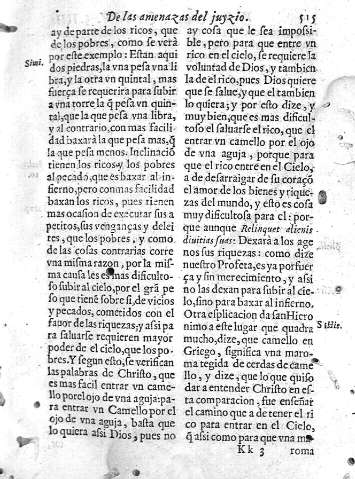 De las amenazas del juyzio. 515
ay de parte de los ricos, que
de los pobres, como se verà
por este exemplo: Estan aqui
Simi.
dos piedras, la vna pesa vna li
bra, y la otra vn quintal, mas
fuerça se requerira para subir
a vna torre la q̃ pesa vn quin-
tal, que la que pesa vna libra,
y al contrario, con mas facili
dad baxarà la que pesa mas, q̃
la que pesa menos. Inclinaciõ
tienen los ricos y los pobres
al pecado, que es baxar al in-
fierno, pero con mas facilidad
baxan los ricos, pues tienen
mas ocasion de executar sus a
petitos, sus venganças y delei
tes, que los pobres, y como
de las cosas contrarias corre
vna misma razon, por la mis-
ma causa les es mas dificulto-
so subir al cielo, por el grã pe
so que tienē sobre si, de vicios
y pecados, cometidos con el
fauor de las riquezas: y assi pa
ra saluarse requieren mayor
poder de el cielo, que los po-
bres. Y segun esto, se verifican
las palabras de Christo, que
es mas facil entrar vn came-
llo por el ojo de vna aguja: pa-
ra entrar vn Camello por el
ojo de vna aguja, basta que
lo quiera assi Dios, pues no
ay cosa que le sea imposi-
ble, pero para que entre vn
rico en el cielo, se requiere la
voluntad de Dios, y tambien
la de el rico, pues Dios quiere
que se salue, y que el tambien
lo quiera; y por esto dize, y
muy bien, que es mas dificul-
toso el saluarse el rico, que el
entrar vn camello por el ojo
de vna aguja, porque para
que el rico entre en el Cielo,
a de desarraigar de su coraçõ
el amor de los bienes y rique-
zas del mundo, y esto es cosa
muy dificultosa para el: por-
que aunque Relinquet alienis
diuitias suas: Dexarà a los age
nos sus riquezas: como dize
nuestro Profeta, es ya por fuer
ça y sin merecimiento, y assi
no las dexan para subir al cie-
lo, sino para baxar al infierno.
Otra esplicacion da san Hiero
nimo a este lugar que quadra
mucho, dize, que camello en
Griego, significa vna maro-
ma tegida de cerdas de came
llo, y dize, que lo que quiso
dar a entender Christo en es-
ta comparacion, fue enseñar
el camino que a de tener el ri
co para entrar en el Cielo,
q̃ assi como para que vna ma-
Kk 3 roma